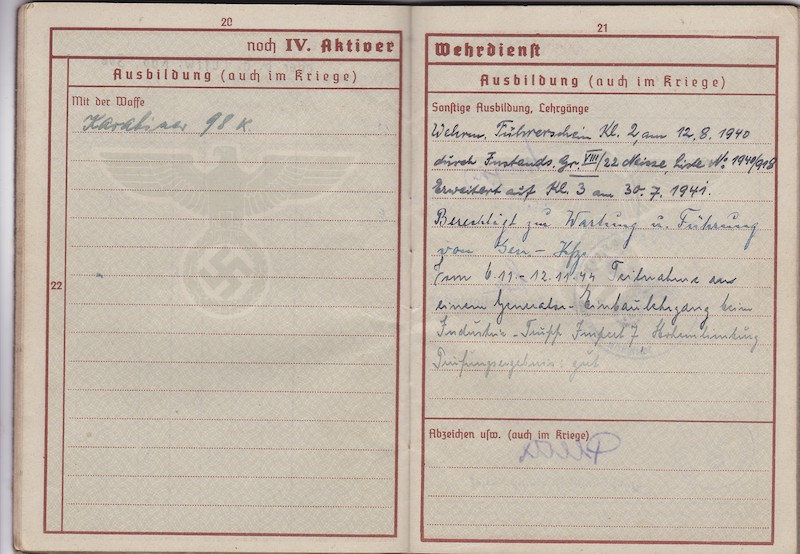 20
noch IV. Aktiver
Ausbildung (auch im Kriege)
Mit der Waffe
Karabiner 98 k.
22
21
Wehrdienst
Ausbildung (auch im Kriege)
Sonstige Ausbildung, Lehrgänge
Wehrm. Führerschein Kl. 2, am 12.8.1940
durch Instands. Gr. VIII/22 Neisse, Liste No 1940/918
Erweitert auf Kl. 3 am 30.7.1941.
Berechtigt zur Wartung u. Führung
von Gen.-Kfz.
Vom 6.11-12.11.44 Teilnahme an
einem Generator-Einbaulehrgang beim
Industrie-Trupp 7,
Prüfungsergebnis: gut
Abzeichen usw. (auch im Kriege)